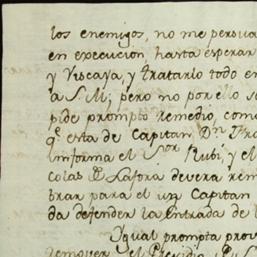 los enemigos, no me persua
en execucion, hasta esperar
y Viscaya, y tratarlo todo en
a S. M; pero no por ello se
pide prompto remedio, com
q.e esta de Capitan D.n
informa el S.or Rubi, y el
colas D. Lafora devera rem
brar para el un Capitan
da defender la entrada de l
Ygual prompta prov
remover el Presidio